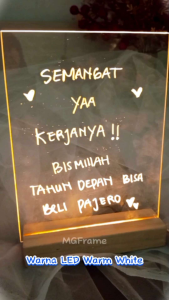 SEMANGAT
YAA
KERJANYA !!
BISMILLAH
TAHUN DEPAN BISA
BELI PAJERO
MGFrame
Warna LED Warm White